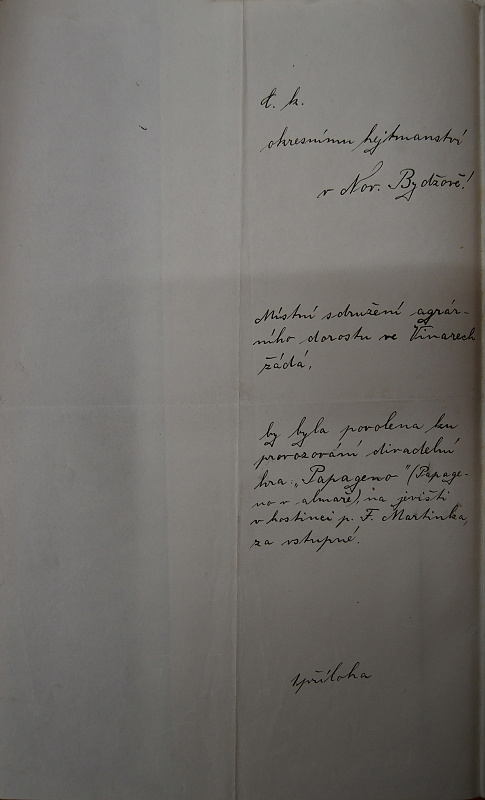 c. k.
okresnímu hejtmanství
v Nov. Bydžově!
Místní sdružení agrár-
ního dorostu ve Vinarech
žádá,
by byla povolena ku
provozování divadelní
hra: „Papageno" (Papage-
no v almaře), na jevišti
v hostinci p. F. Martinka,
za vstupné.
1 příloha